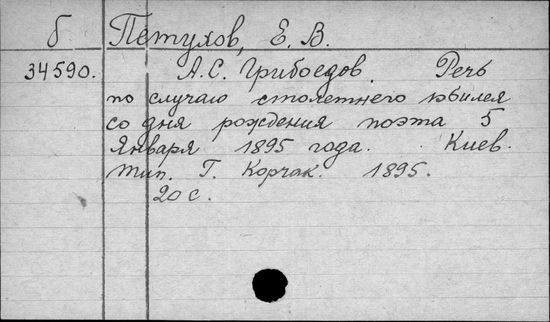 Б Петухов, Е. В.
34590. А.С. Грибоедов. Речь
по случаю столетнего юбилея
со дня рождения поэта 5
Января 1895 года. Киев.
тип. Г. Корчак. 1895.
20 с.